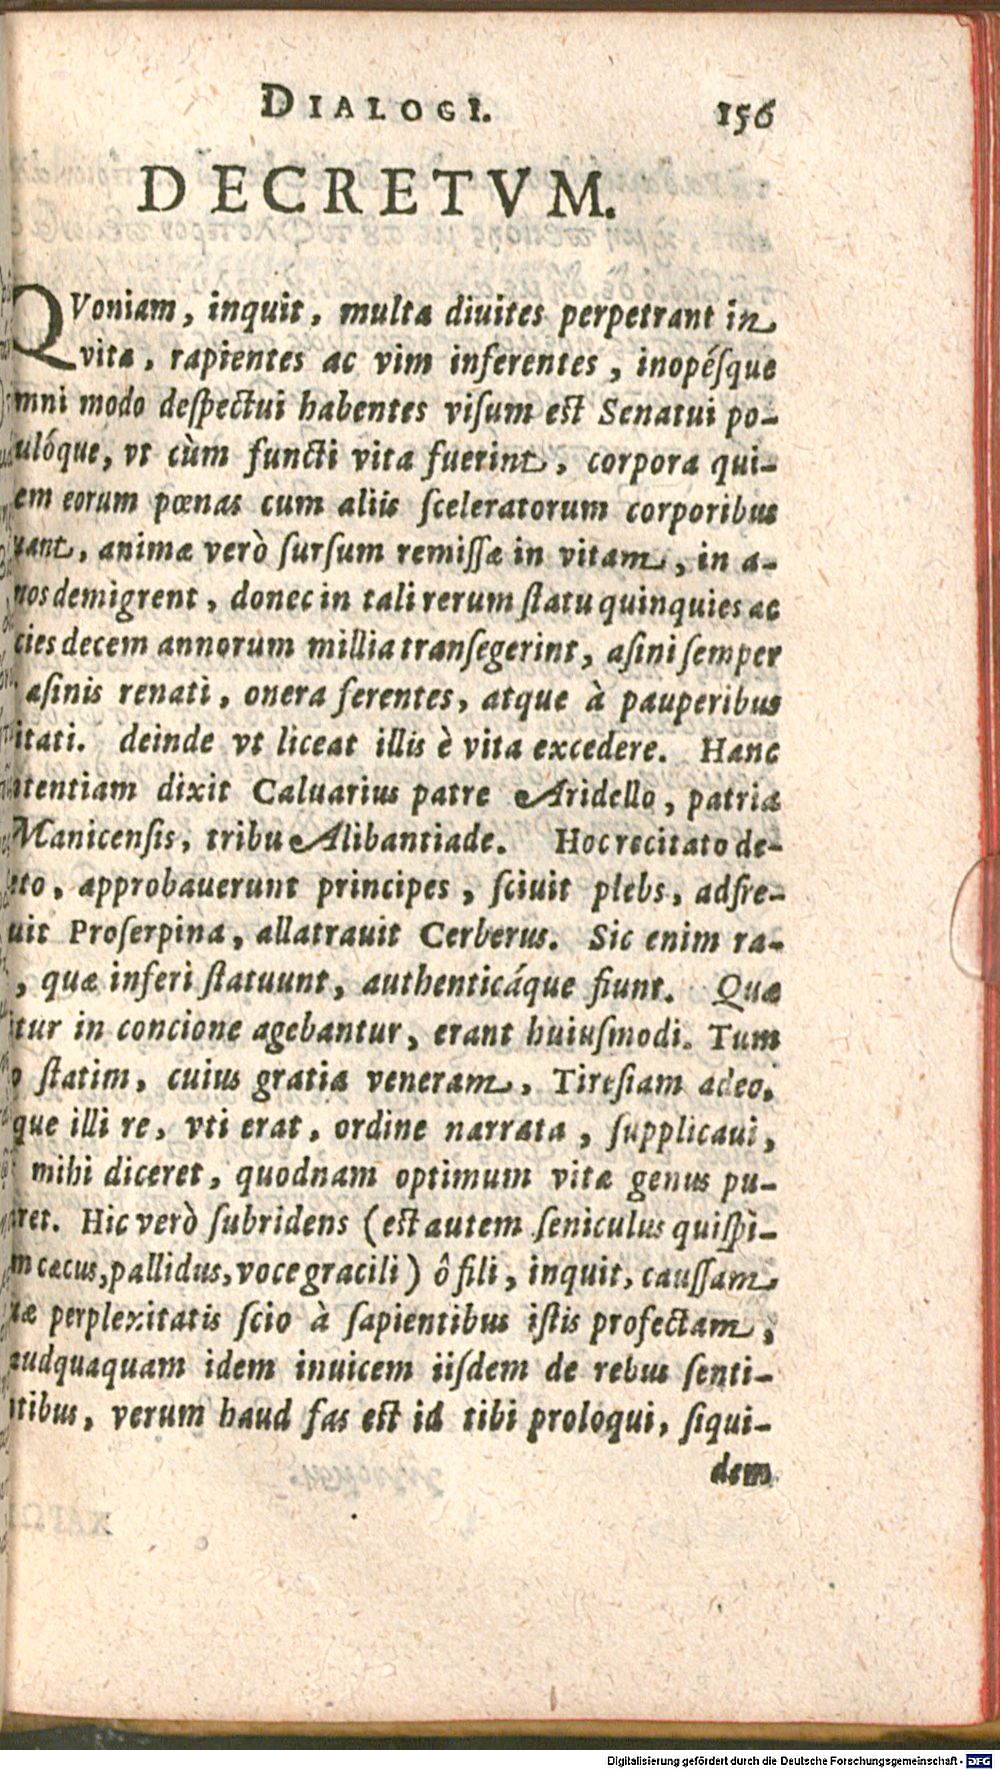 DIALOGI. 156
DECRETVM.
QVoniam, inquit, multa diuites perpetrant in
vita, rapientes ac vim inferentes, inopésque
mni modo deſpectui habentes viſum eſt Senatui po-
ulóque, vt cùm functi vita fuerint, corpora qui-
em eorum pœnas cum aliis ſceleratorum corporibus
uant, animæ verò ſurſum remiſſæ in vitam, in a-
nos demigrent, donec in tali rerum ſtatu quinquies ac
cies decem annorum millia tranſegerint, aſini ſemper
aſinis renati, onera ferentes, atque à pauperibus
itati. deinde vt liceat illis è vita excedere. Hanc
ntentiam dixit Caluarius patre Aridello, patria
Manicenſis, tribu Alibantiade. Hoc recitato de-
eto, approbauerunt principes, ſciuit plebs, adfre-
uit Proſerpina, allatrauit Cerberus. Sic enim ra-
, quæ inferi ſtatuunt, authenticáque fiunt. Quæ
itur in concione agebantur, erant huiuſmodi. Tum
o ſtatim, cuius gratia veneram, Tireſiam adeo,
que illi re, vti erat, ordine narrata, ſupplicaui,
mihi diceret, quodnam optimum vitæ genus pu-
ret. Hic verò ſubridens (eſt autem ſeniculus quiſpi-
m cæcus, pallidus, voce gracili) ô fili, inquit, cauſſam
æ perplexitatis ſcio à ſapientibus iſtis profectam,
audquaquam idem inuicem iiſdem de rebus ſenti-
ntibus, verum haud fas eſt id tibi proloqui, ſiqui-
dem
Digitalisierung gefördert durch die Deutsche Forschungsgemeinschaft - DFG